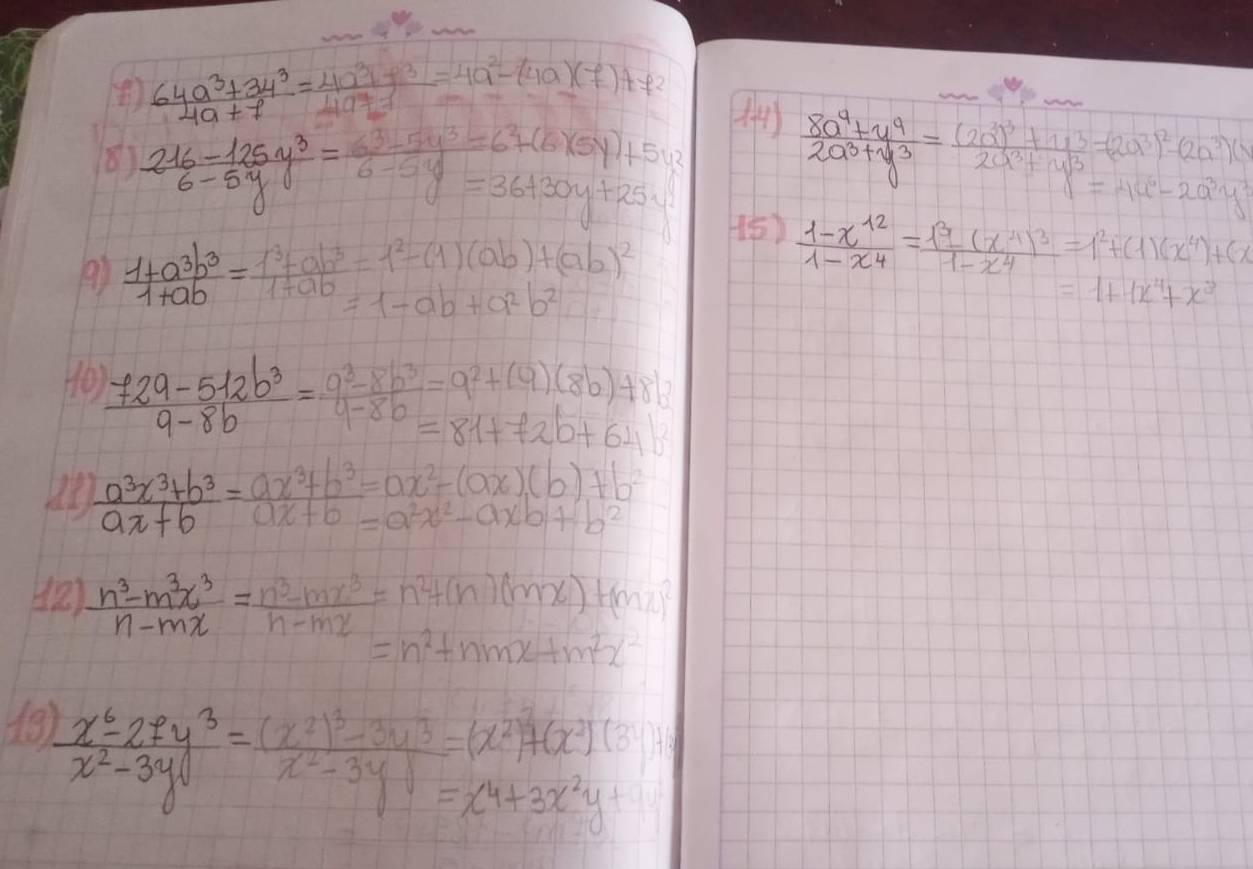 7) 64a³+343/4a+7 = 4a³+7³/4a+7 = 4a²-(4a)(7)+7²
8) 216-125y³/6-5y = 6³-5y³/6-5y = 6²+(6)(5y)+5y²
=36+30y+25y²
9) 1+a³b³/1+ab = 1³+ab³/1+ab = 1²-(1)(ab)+(ab)²
= 1-ab+a²b²
10) 729-512b³/9-8b = 9³-8b³/9-8b = 9²+(9)(8b)+8b²
= 81+72b+64b²
11) a³x³+b³/ax+b = ax³+b³/ax+b = ax²-(ax)(b)+b²
= a²x²-axb+b²
12) n³-m³x³/n-mx = n³-mx³/n-mx = n²+(n)(mx)+(mx)²
= n²+nmx+m²x²
13) x⁶-27y³/x²-3y = (x²)³-3y³/x²-3y = (x²)²+(x²)(3y)+
= x4+3x²y+9y
14) 8a⁹+y⁹/2a³+y³ = (2a³)³+y³/2a³+y³ = (2a³)²-(2a³)(y
= 4a⁶-2a³y³
15) 1-x¹²/1-x4 = 1³-(x⁴)³/1-x⁴ = 1²+(1)(x⁴)+(x
= 1+1x⁴+x⁸